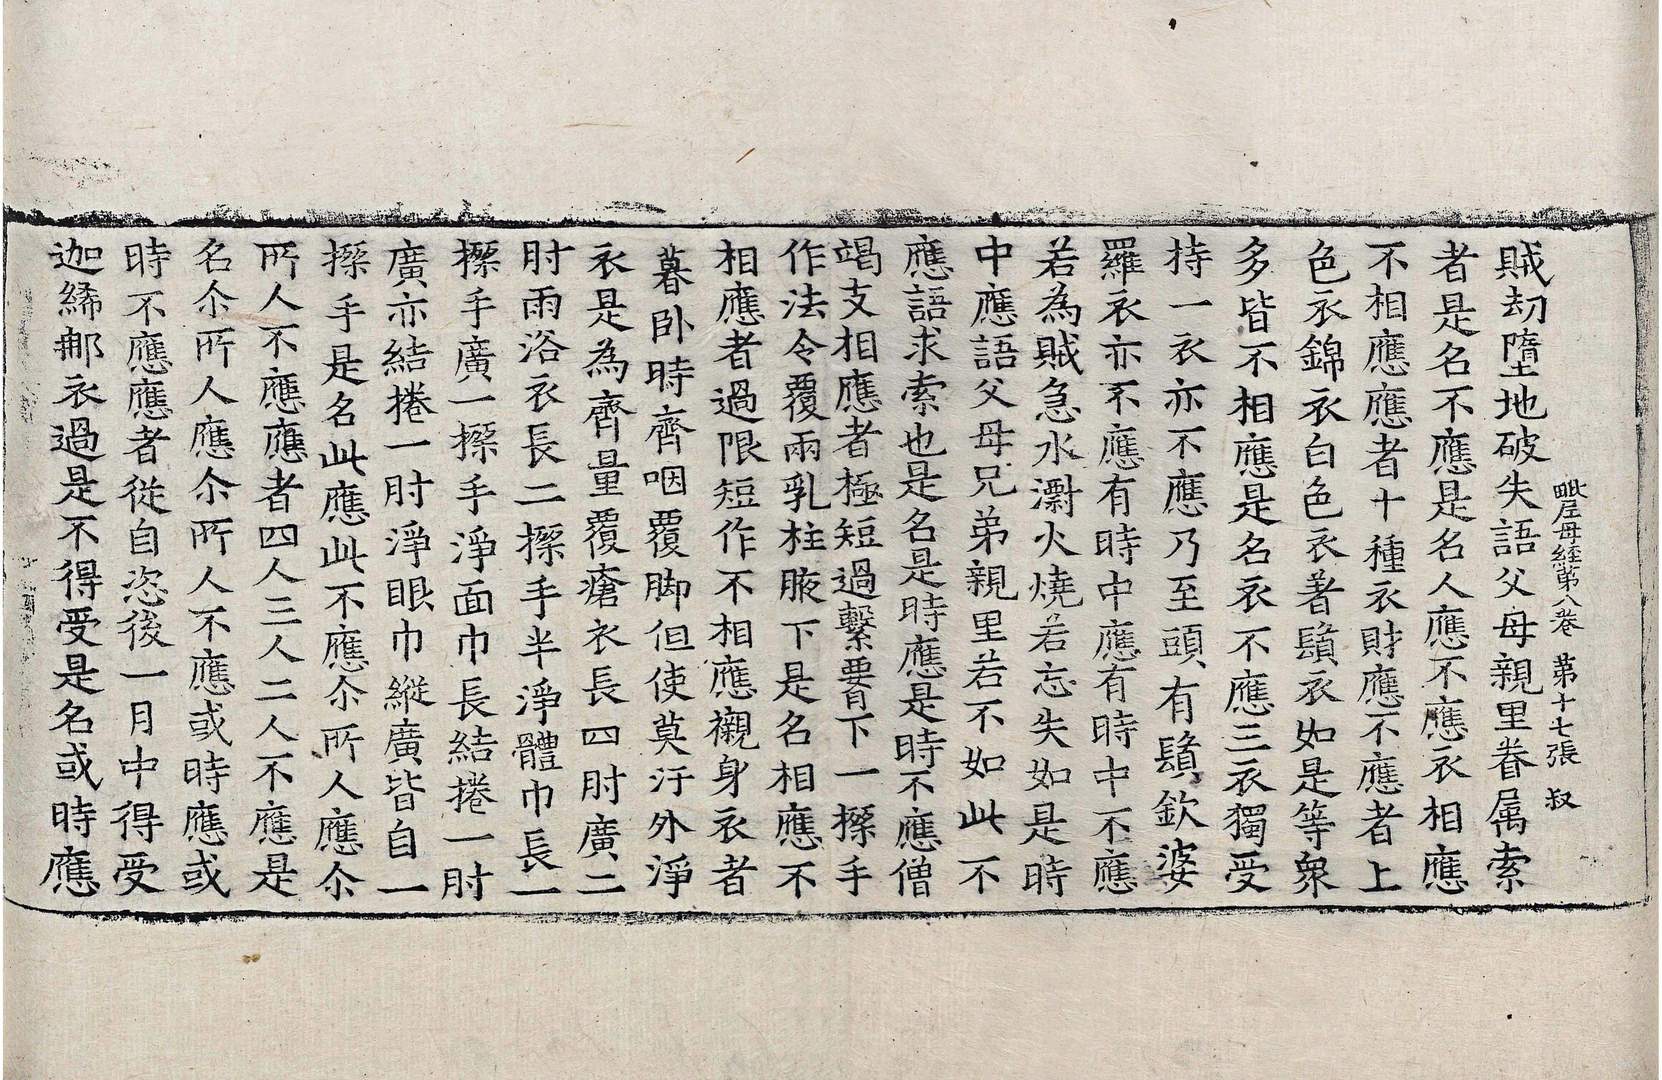 毗尼母經第八卷 第十七張 叔
賊劫墮地破失語父母親里眷属索
者是名不應是名人應不應衣相應
不相應應者十種衣財應不應者上
色衣錦衣白色衣著鬚衣如是等衆
多皆不相應是名衣不應三衣獨受
持一衣亦不應乃至頭有鬚欽婆
羅衣亦不應有時中應有時中不應
若為賊急水澍火燒若忘失如是時
中應語父母兄弟親里若不如此不
應語求索也是名是時應是時不應僧
竭支相應者極短過繫要下一搩手
作法令覆兩乳柱腋下是名相應不
相應者過限短作不相應襯身衣者
暮卧時齊咽覆脚但使莫汙外淨
衣是為齊量覆瘡衣長四肘廣二
肘雨浴衣長二搩手半淨體巾長一
搩手廣一搩手淨面巾長結捲一肘
廣亦結捲一肘淨眼巾縱廣皆自一
搩手是名此應此不應尒所人應尒
所人不應應者四人三人二人不應是
名尒所人應尒所人不應或時應或
時不應應者從自恣後一月中得受
迦絺那衣過是不得受是名或時應